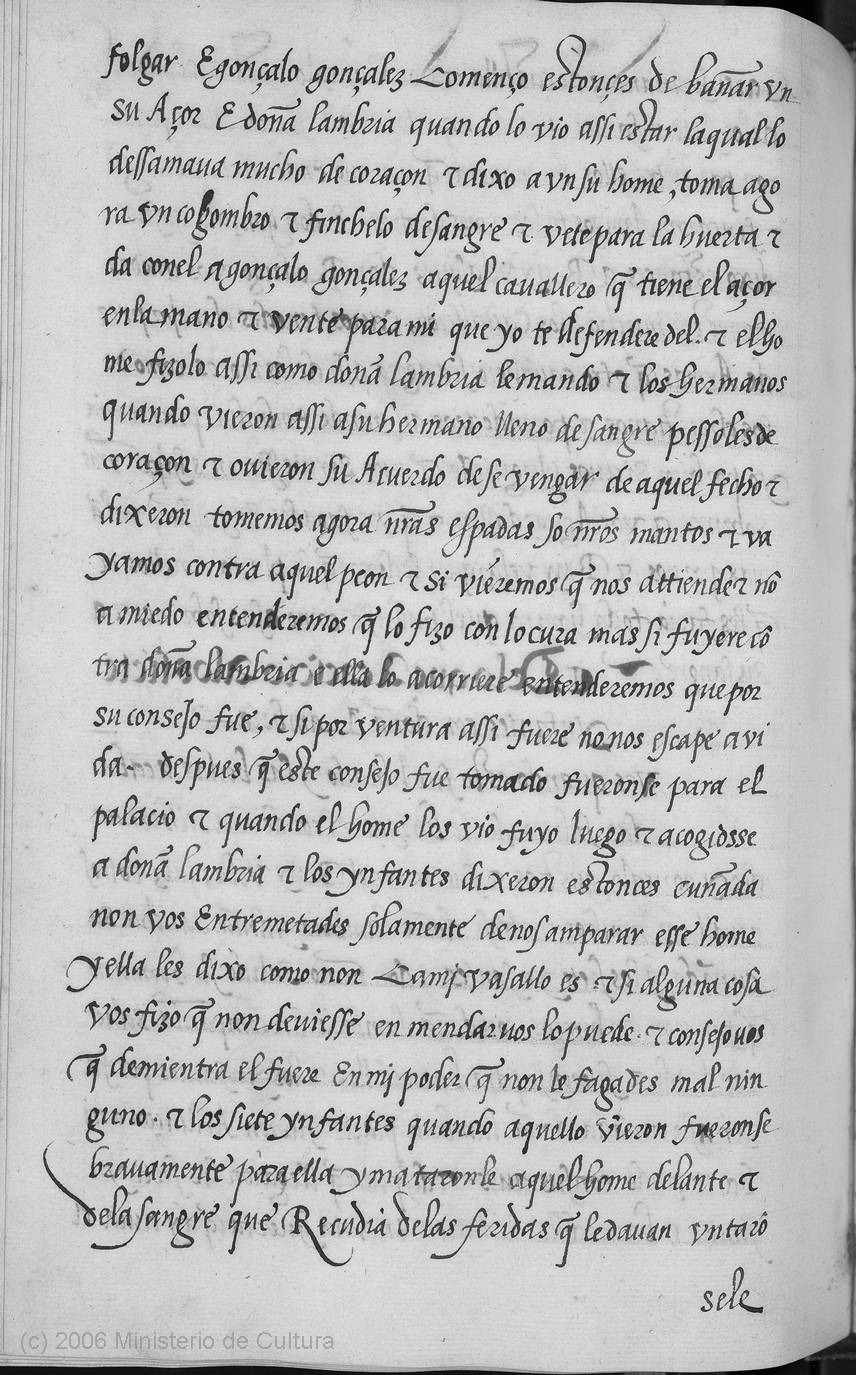 folgar E gonçalo gonçalez Començo estonçes de bañar vn
su Açor E doña lambria quando lo vio assi estar laqual lo
dessamaua mucho de coraçon τ dixo a vn su home, toma ago
ra vn cogombro τ finchelo de sangre τ vete para la huerta τ
da conel a gonçalo gonçalez aquel cauallero q̃ tiene el açor
en la mano τ vente para mi que yo te defendere del. τ el ho
me fizolo assi como doña lambria le mando τ los hermanos
quando vieron assi a su hermano lleno de sangre pessoles de
coraçon τ ovieron su Acuerdo de se vengar de aquel fecho τ
dixeron tomemos agora nr̃as espadas so nr̃os mantos τ va
yamos contra aquel peon τ si viéremos q̃ nos attiende τ nõ
a miedo entenderemos q̃ lo fizo con locura mas si fuyere cõ
tra doña lambria e ella lo acorriere entenderemos que por
su consejo fue, τ si por ventura assi fuere no nos escape a vi
da. despues q̃ este consejo fue tomado fueronse para el
palacio τ quando el home los vio fuyo luego τ acogiosse
a doña lambria τ los ynfantes dixeron estonces cuñada
non vos Entremetades solamente de nos amparar esse home
y ella les dixo como non Ca mj vasallo es τ si alguna cosa
vos fizo q̃ non deviesse enmendaruos lo puede. τ consejo uos
q̃ demientra el fuere En mj poder q̃ non le fagades mal nin
guno. τ los siete ynfantes quando aquello vieron fueronse
brauamente para ella y mataronle aquel home delante τ
de la sangre que Recudia de las feridas q̃ le dauan vntarõ
sele
(c) 2006 Ministerio de Cultura